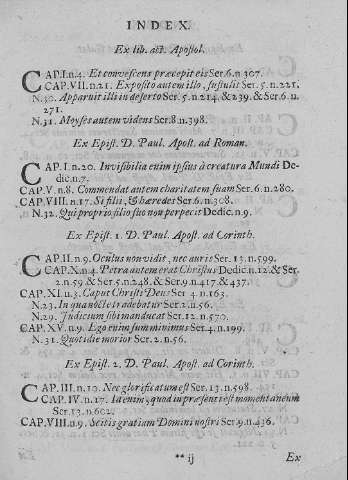 INDEX.
Ex lib. act. Apostol.
CAP. I. n. 4. Et convescens præcepit eis Ser. 6. n. 307.
CAP. VII. n. 21. Exposito autem illo, sustulit Ser. 5. n. 221.
N. 30. Apparuit illi in deserto Ser. 5. n. 214. & 239. & Ser. 6. n.
271.
N. 31. Moyses autem videns Ser. 8. n. 398.
Ex Epist. D. Paul. Apost. ad Roman.
CAP. I. n. 20. Invisibilia enim ipsius à creatura Mundi De-
dic. n. 7.
CAP. V. n. 8. Commendat autem charitatem suam Ser. 6. n. 280.
CAP. VIII. n. 17. Si filii, & hæredes Ser. 6. n. 308.
N. 32. Qui proprio filio suo non perpecit Dedic. n. 9.
Ex Epist. 1. D. Paul. Apost. ad Corinth.
CAP. II. n. 9. Oculus non vidit, nec auris Ser. 13. n. 599.
CAP. X. n. 4. Petra autem erat Christus Dedic. n. 12. & Ser.
2. n. 59. & Ser. 5. n. 248. & Ser. 9. n. 417. & 437.
CAP. XI. n. 3. Caput Christi Deus Ser. 4. n. 163.
N. 23. In qua nocte tradebatur Ser. 2. n. 56.
N. 29. Judicium sibi manducat Ser. 12. n. 570.
CAP. XV. n. 9. Ego enim sum minimus Ser. 4. n. 199.
N. 31. Quotidie morior Ser. 2. n. 56.
Ex Epist. 2. D. Paul. Apost. ad Corinth.
CAP. III. n. 10. Nec glorificatum est Ser. 13. n. 598.
CAP. IV. n. 17. Id enim, quod in præsenti est momentaneum
Ser. 13. n. 602.
CAP. VIII. n. 9. Scitis gratiam Domini nostri Ser. 9. n. 436.
** ij Ex